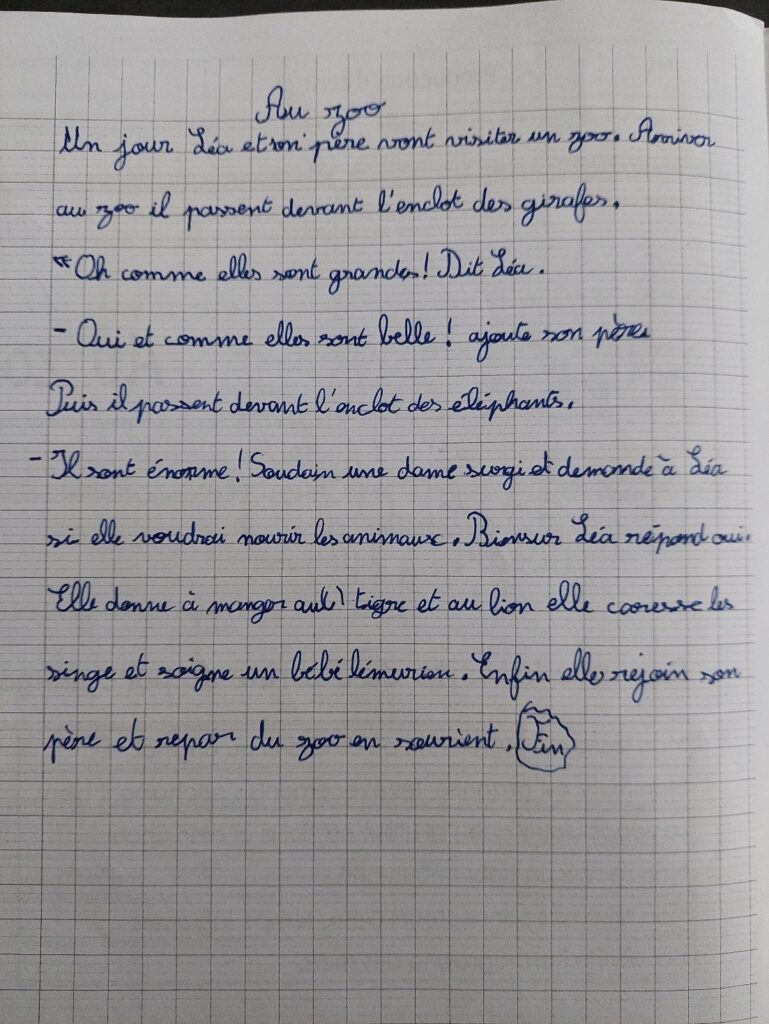 Au zoo
Un jour Léa et son père vont visiter un zoo. Arriver
au zoo il passent devant l'enclot des girafes.
"Oh comme elles sont grandes! Dit Léa.
- Oui et comme elles sont belle! ajoute son père
Puis il passent devant l'enclot des éléphants.
- Il sont énorme! Soudain une dame surgi et demande à Léa
si elle voudrai nourir les animaux. Biensur Léa répond oui.
Elle donne à manger au tigre et au lion elle caresse les
singe et soigne un bébé lémurien. Enfin elle rejoin son
père et repar du zoo en sourient. Fin